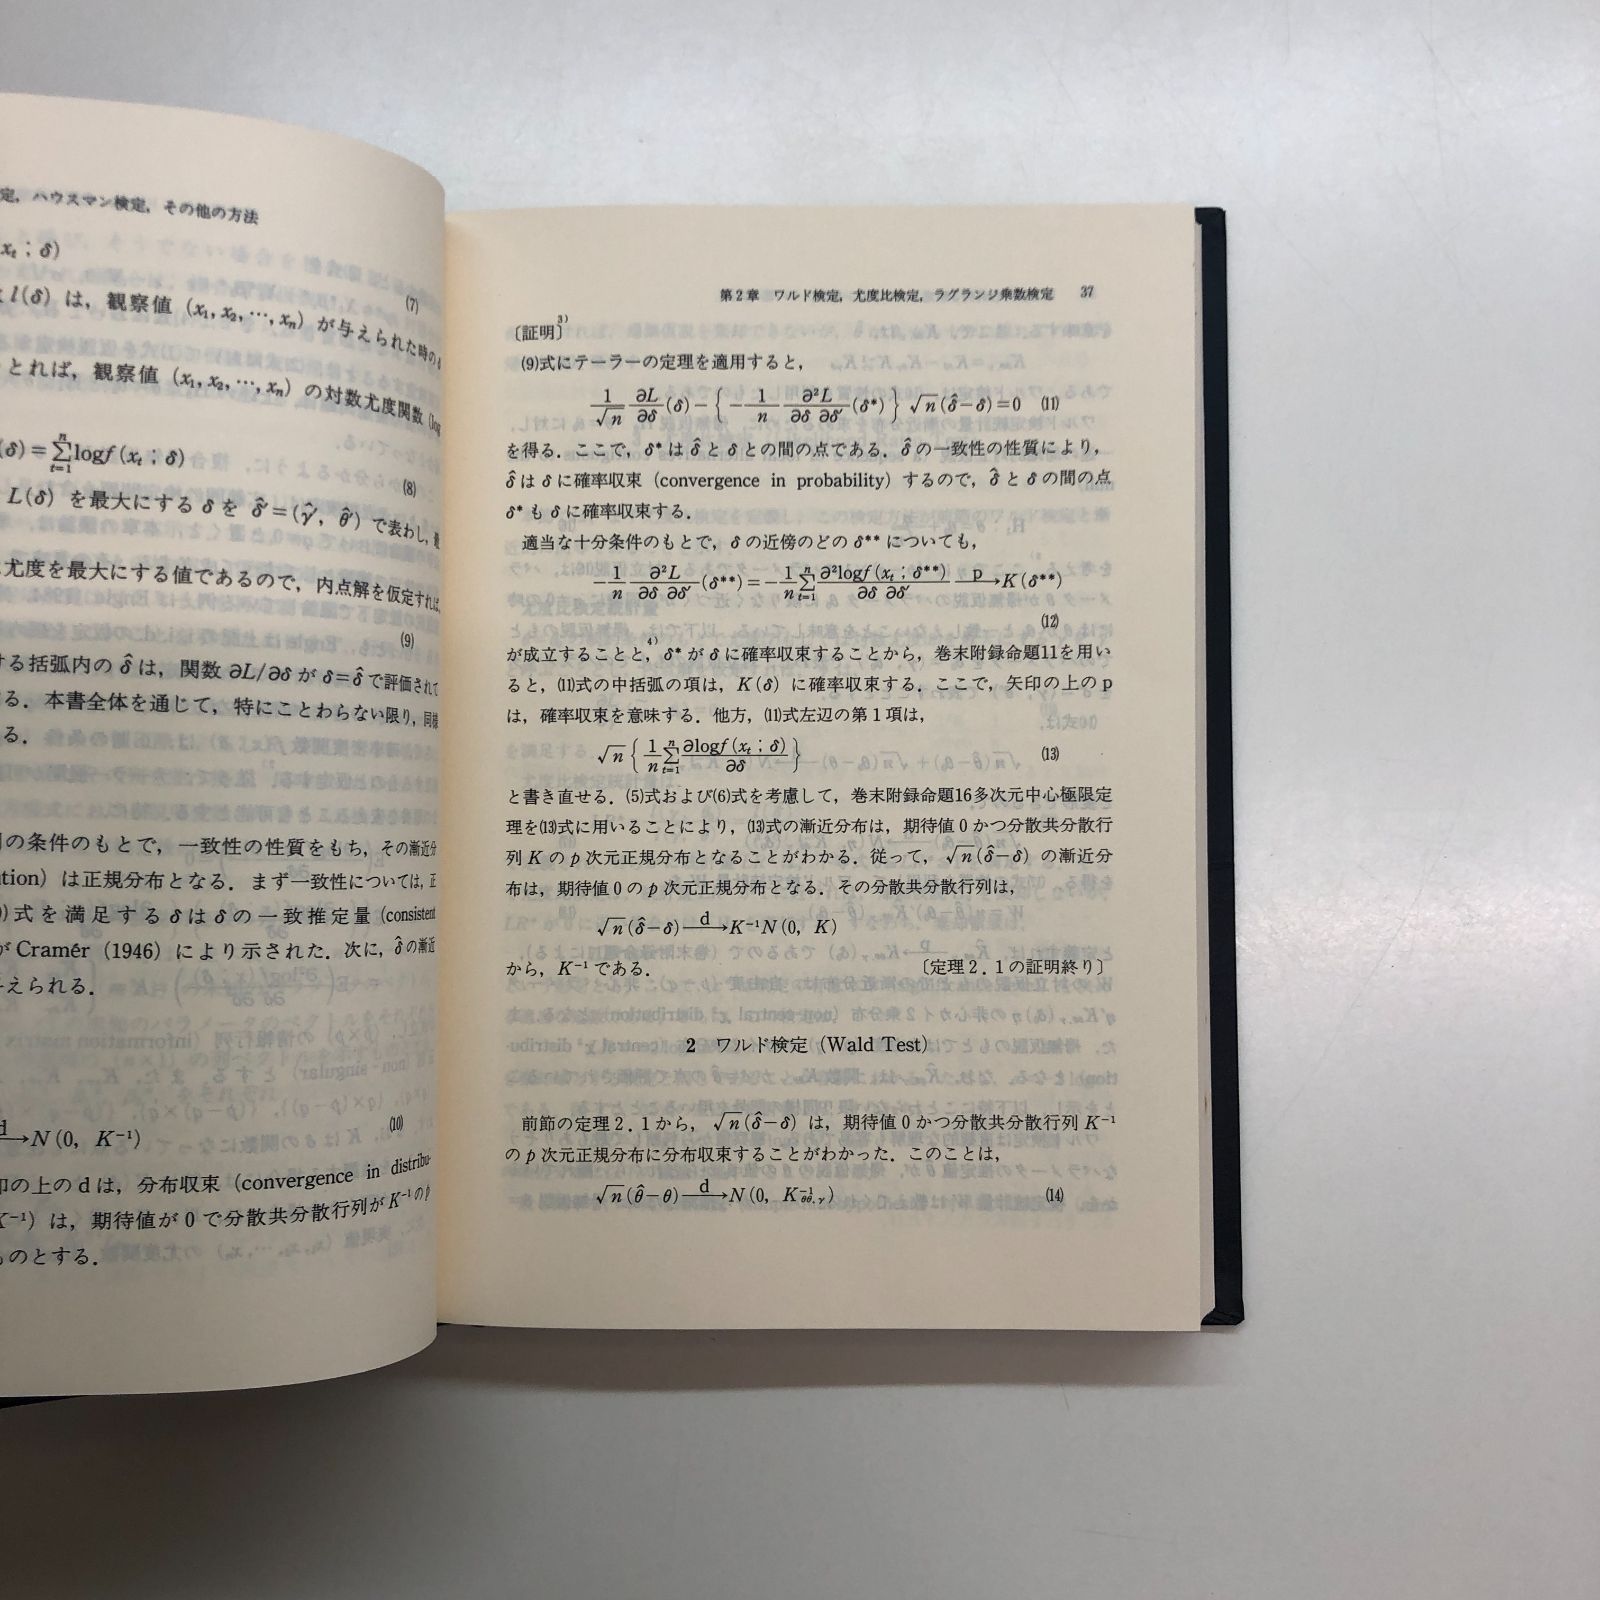 定，ハウスマン検定，その他の方法
xₜ ; δ)
(7)
l(δ) は，観察値 (x₁, x₂, ⋯, xₙ) が与えられた時の
とれば，観察値 (x₁, x₂, ⋯, xₙ) の対数尤度関数 (log
(δ)=∑ₜ₌₁ⁿ logf(xₜ ; δ)
(8)
L(δ) を最大にする δ を δ̂′=(γ̂′, θ̂′) で表わし，最
尤度を最大にする値であるので，内点解を仮定すれば，
(9)
する括弧内の δ̂ は，関数 ∂L/∂δ が δ=δ̂ で評価されて
る．本書全体を通じて，特にことわらない限り，同様
る．
の条件のもとで，一致性の性質をもち，その漸近分
ution) は正規分布となる．まず一致性については，正
)式を満足する δ は δ の一致推定量 (consistent
が Cramér (1946) により示された．次に，δ̂ の漸近
えられる．
d→N(0, K⁻¹)
(10)
印の上の d は，分布収束 (convergence in distribu-
K⁻¹) は，期待値が 0 で分散共分散行列が K⁻¹ の p
ものとする．
第2章　ワルド検定，尤度比検定，ラグランジ乗数検定　37
〔証明〕³⁾
(9)式にテーラーの定理を適用すると，
1/√n ∂L/∂δ (δ)−{−1/n ∂²L/∂δ ∂δ′ (δ*)} √n(δ̂−δ)=0　(11)
を得る．ここで，δ* は δ̂ と δ との間の点である．δ̂ の一致性の性質により，
δ̂ は δ に確率収束 (convergence in probability) するので，δ̂ と δ の間の点
δ* も δ に確率収束する．
適当な十分条件のもとで，δ の近傍のどの δ** についても，
−1/n ∂²L/∂δ ∂δ′ (δ**)=−1/n ∑ₜ₌₁ⁿ ∂²logf(xₜ ; δ**)/∂δ ∂δ′ p→K(δ**)
(12)
が成立することと，⁴⁾ δ* が δ に確率収束することから，巻末附録命題11を用い
ると，(11)式の中括弧の項は，K(δ) に確率収束する．ここで，矢印の上の p
は，確率収束を意味する．他方，(11)式左辺の第1項は，
√n {1/n ∑ₜ₌₁ⁿ ∂logf(xₜ ; δ)/∂δ}　(13)
と書き直せる．(5)式および(6)式を考慮して，巻末附録命題16多次元中心極限定
理を(13)式に用いることにより，(13)式の漸近分布は，期待値 0 かつ分散共分散行
列 K の p 次元正規分布となることがわかる．従って，√n(δ̂−δ) の漸近分
布は，期待値 0 の p 次元正規分布となる．その分散共分散行列は，
√n(δ̂−δ) d→K⁻¹N(0, K)
から，K⁻¹ である．　〔定理2.1の証明終り〕
2　ワルド検定 (Wald Test)
前節の定理2.1から，√n(δ̂−δ) は，期待値 0 かつ分散共分散行列 K⁻¹
の p 次元正規分布に分布収束することがわかった．このことは，
√n(θ̂−θ) d→N(0, K⁻¹_θθ.γ)　(14)